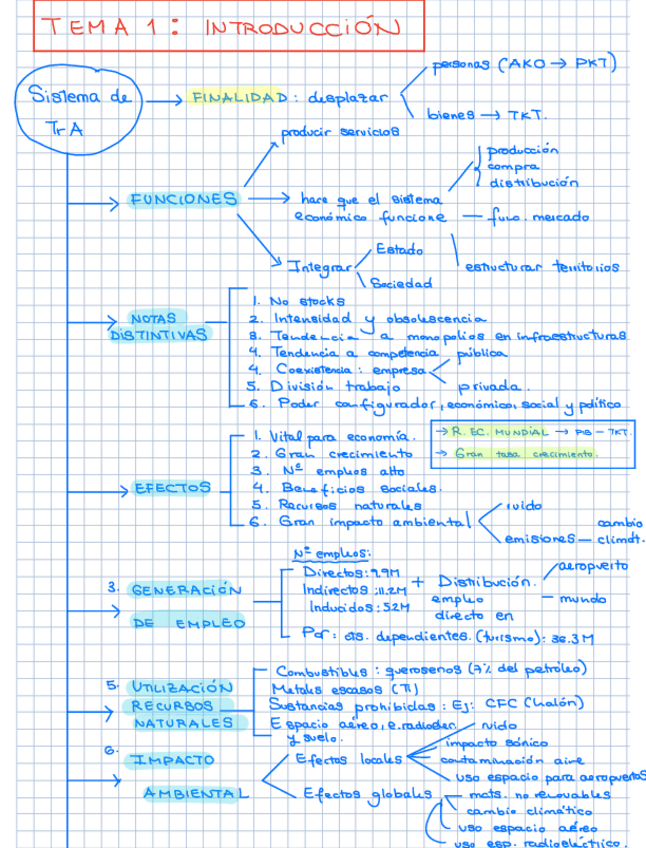 TEMA 1: INTRODUCCIÓN
Sistema de TrA → FINALIDAD: desplazar
personas (AKO → PKT)
bienes → TKT.
→ FUNCIONES
producir servicios
→ hace que el sistema económico funcione — func. mercado
producción
compra
distribución
estructurar territorios
Integrar
Estado
Sociedad
→ NOTAS DISTINTIVAS
1. No stocks
2. Intensidad y obsolescencia
3. Tendencia a monopolios en infraestructuras
4. Tendencia a competencia
4. Coexistencia: empresa
pública
privada.
5. División trabajo
6. Poder configurador, económico, social y político
→ EFECTOS
1. Vital para economía.
2. Gran crecimiento
3. Nº empleos alto
4. Beneficios sociales.
5. Recursos naturales
6. Gran impacto ambiental
ruido
emisiones — cambio climát.
→ R. EC. MUNDIAL → PIB – TKT.
→ Gran tasa crecimiento.
3. GENERACIÓN DE EMPLEO
Nº empleos:
Directos: 9.9M
Indirectos: 11.2M
Inducidos: 5.2M
+ Distribución. empleo directo en
aeropuerto
— mundo
Por: ots. dependientes. (turismo): 36.3M
5. UTILIZACIÓN RECURSOS NATURALES
Combustibles: querosenos (7% del petróleo)
Metales escasos (Ti)
Sustancias prohibidas: Ej: CFC (halón)
Espacio aéreo, e. radioeléc. y suelo.
6. IMPACTO AMBIENTAL
Efectos locales
ruido
impacto sónico
contaminación aire
uso espacio para aeropuertos
Efectos globales
mats. no renovables
cambio climático
uso espacio aéreo
uso esp. radioeléctrico.